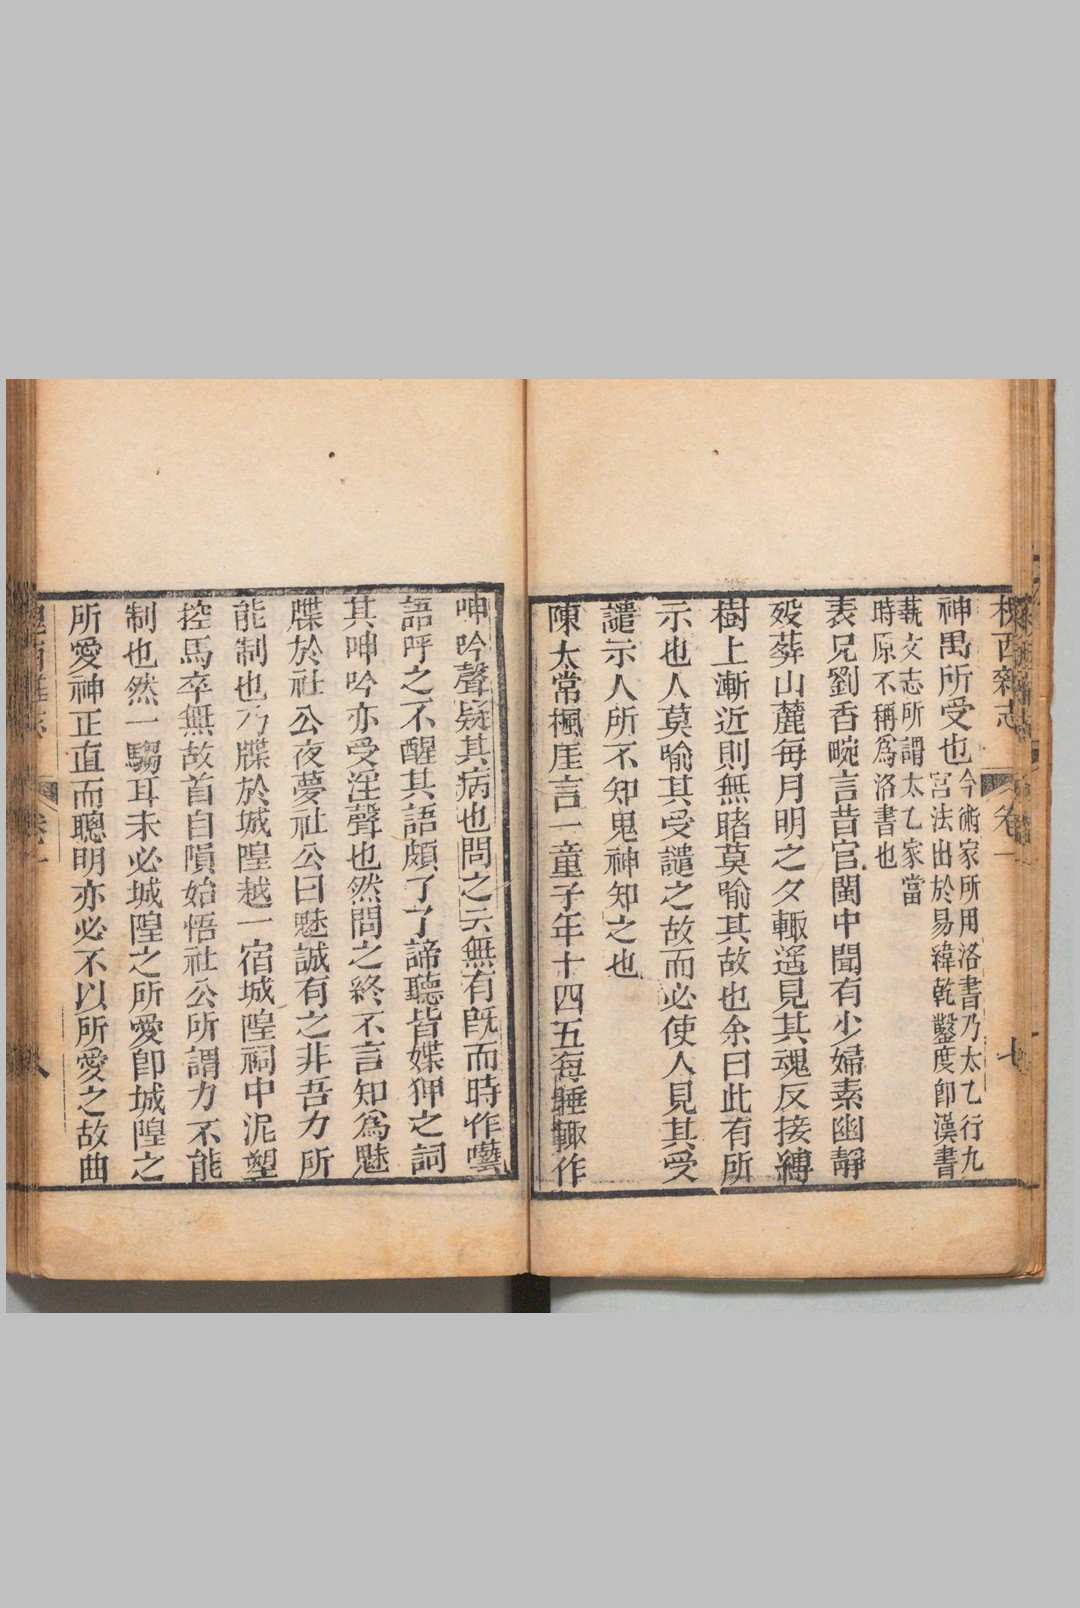 槐西雜志 卷一 七
神禺所受也今術家所用洛書乃太乙行九
宮法出於易緯乾鑿度卽漢書
蓺文志所謂太乙家當
時原不稱爲洛書也
表兄劉香畹言昔官閩中聞有少婦素幽靜
歿葬山麓每月明之夕輒遥見其魂反接縛
樹上漸近則無睹莫喻其故也余曰此有所
示也人莫喻其受譴之故而必使人見其受
譴示人所不知鬼神知之也
陳太常楓厓言一童子年十四五每睡輒作
呻吟聲疑其病也問之云無有旣而時作囈
語呼之不醒其語頗了了諦聽皆媟狎之詞
其呻吟亦受淫聲也然問之終不言知爲魅
牒於社公夜夢社公曰魅誠有之非吾力所
能制也乃牒於城隍越一宿城隍祠中泥塑
控馬卒無故首自隕始悟社公所謂力不能
制也然一騶耳未必城隍之所愛卽城隍之
所愛神正直而聰明亦必不以所愛之故曲